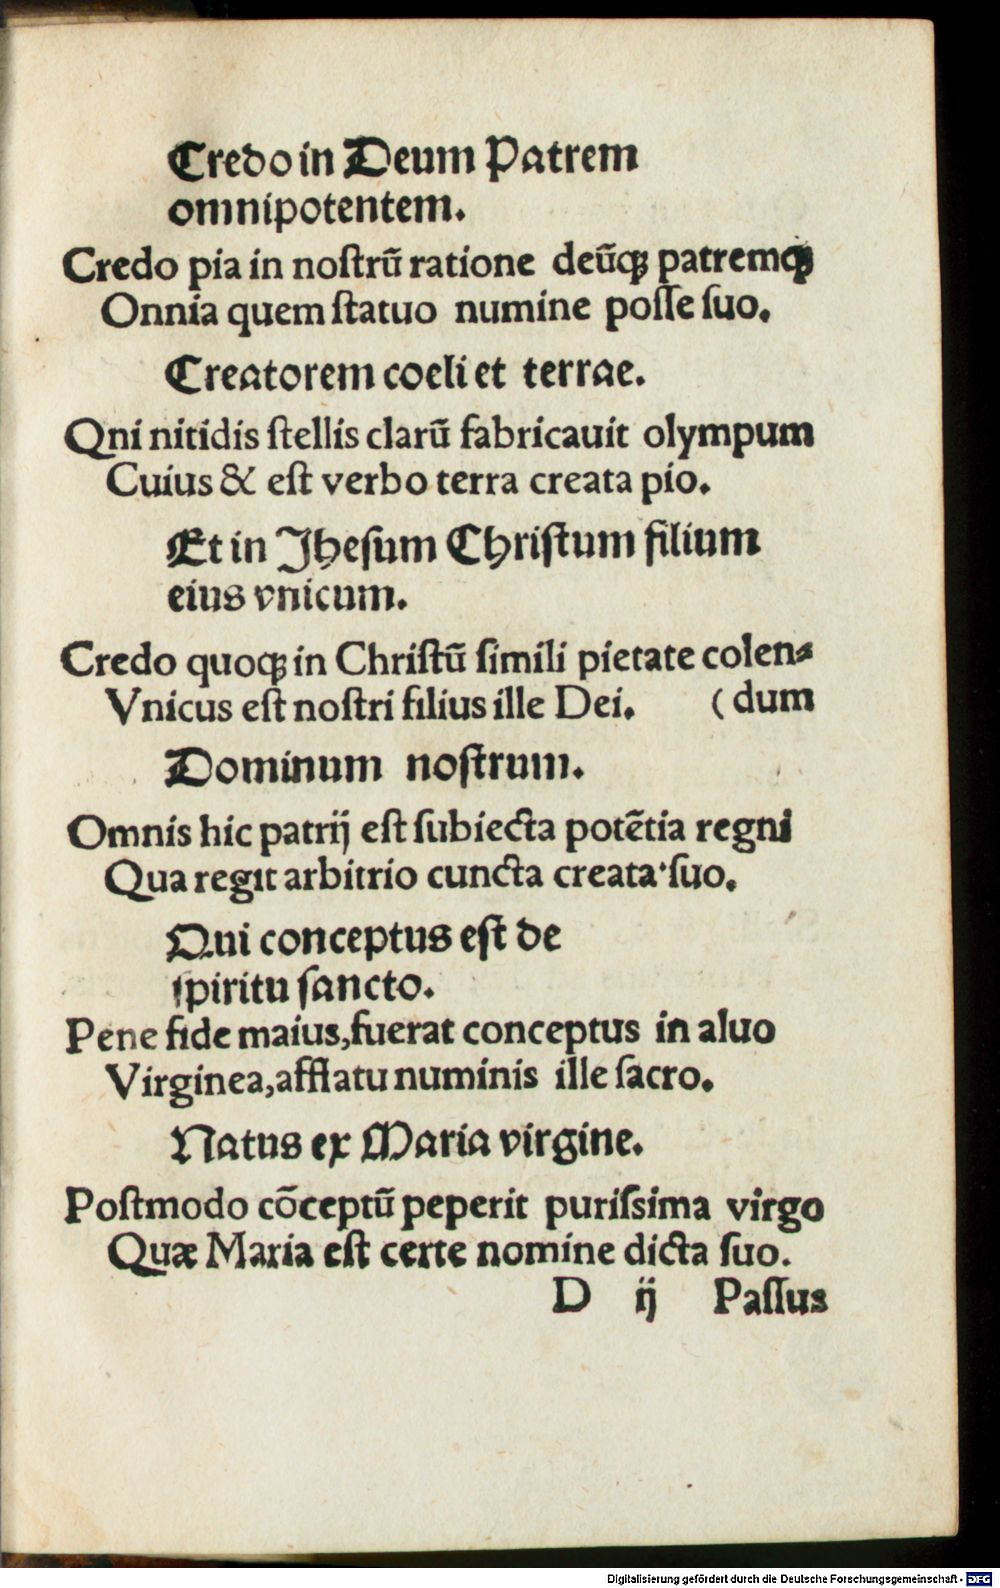 Credo in Deum Patrem
omnipotentem.
Credo pia in noſtrū ratione deūqꝫ patremqꝫ
Onnia quem ſtatuo numine poſſe ſuo.
Creatorem coeli et terrae.
Qni nitidis ſtellis clarū fabricauit olympum
Cuius & eſt verbo terra creata pio.
Et in Jheſum Chriſtum filium
eius vnicum.
Credo quoqꝫ in Chriſtū ſimili pietate colen⸗
Vnicus eſt noſtri filius ille Dei. (dum
Dominum noſtrum.
Omnis hic patrij eſt ſubiecta potētia regni
Qua regit arbitrio cuncta creata·ſuo.
Qui conceptus eſt de
ſpiritu ſancto.
Pene fide maius,fuerat conceptus in aluo
Virginea,afflatu numinis ille ſacro.
Natus ex Maria virgine.
Poſtmodo cōceptū peperit puriſsima virgo
Quæ Maria eſt certe nomine dicta ſuo.
D ij Paſſus
Digitalisierung gefördert durch die Deutsche Forschungsgemeinschaft - DFG